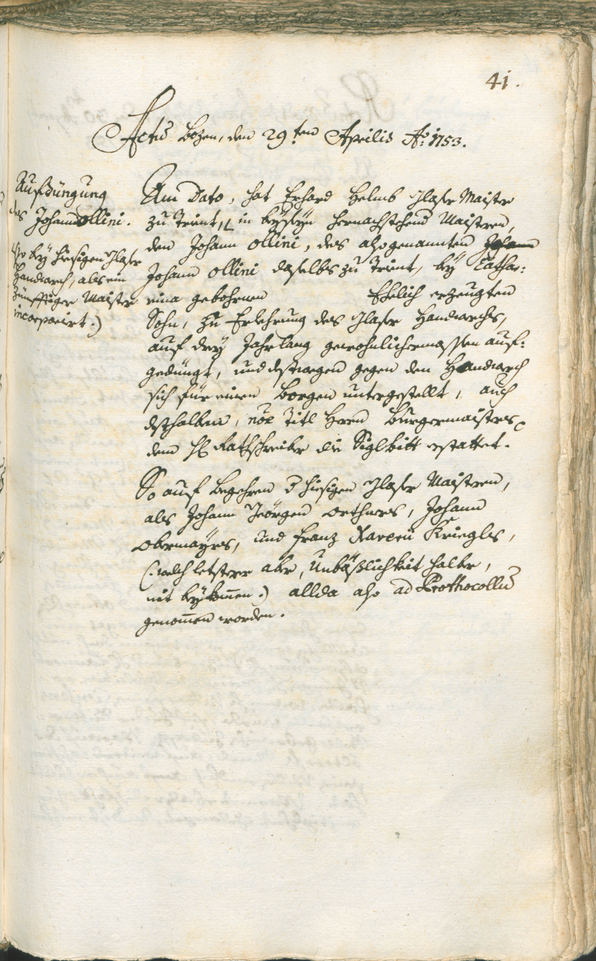 41.
Actũ Bozen, den 29.ten Aprilis Ao: 1753.
Aufdüngung
des Johann Ollini.
Handwerch, als ein
Zünfftiger Maister
incorporirt.)
Am Dato, hat Erhard Helmb Glaser Maister
zu Trient, in beyseyn hernachstehend Maistern,
den Johann Ollini, des also genannten
Johann Ollini daselbs zu Trient, bey Catha:
rina gebohrnen Ehelich erzeugten
Sohn, zu Erlehrung des Glaser Handwerchs,
auf drey Jahrlang gewohnlichermassen auf:
gedüngt, und destwegen gegen dem Handwerch
sich für einen Borgen untergestellt, auch
desthalben, noe Titl Herrn Burgermaisters
dem H Rathschreiber die Siglbitt erstattet.
So auf begehren d hiesigen Glaser Maistern,
als Johann Georgen Orthners, Johann
Obermayrs, und Franz Xaveri Kriegls,
(: welch letsterer aber, Unbäßlichkeit halber,
nit beykommen.) allda also ad Prothocollũ
genommen worden.